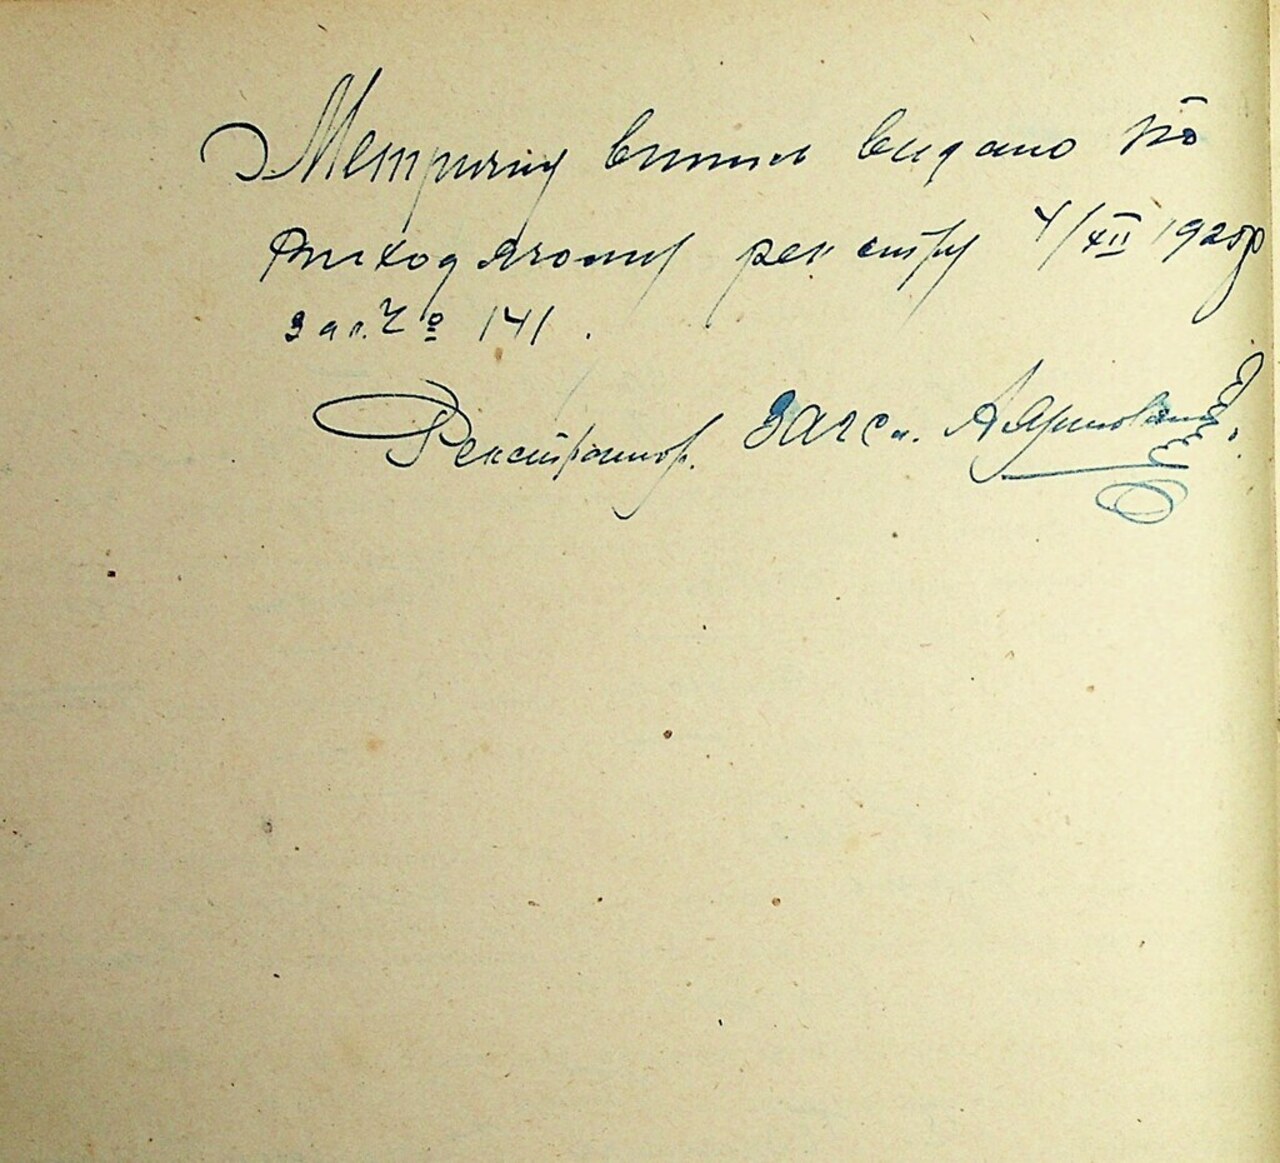 Метричну випись видано по
виходячому реєстру 4/XII 192
за № 141.
Реєстратор ЗАГСу.